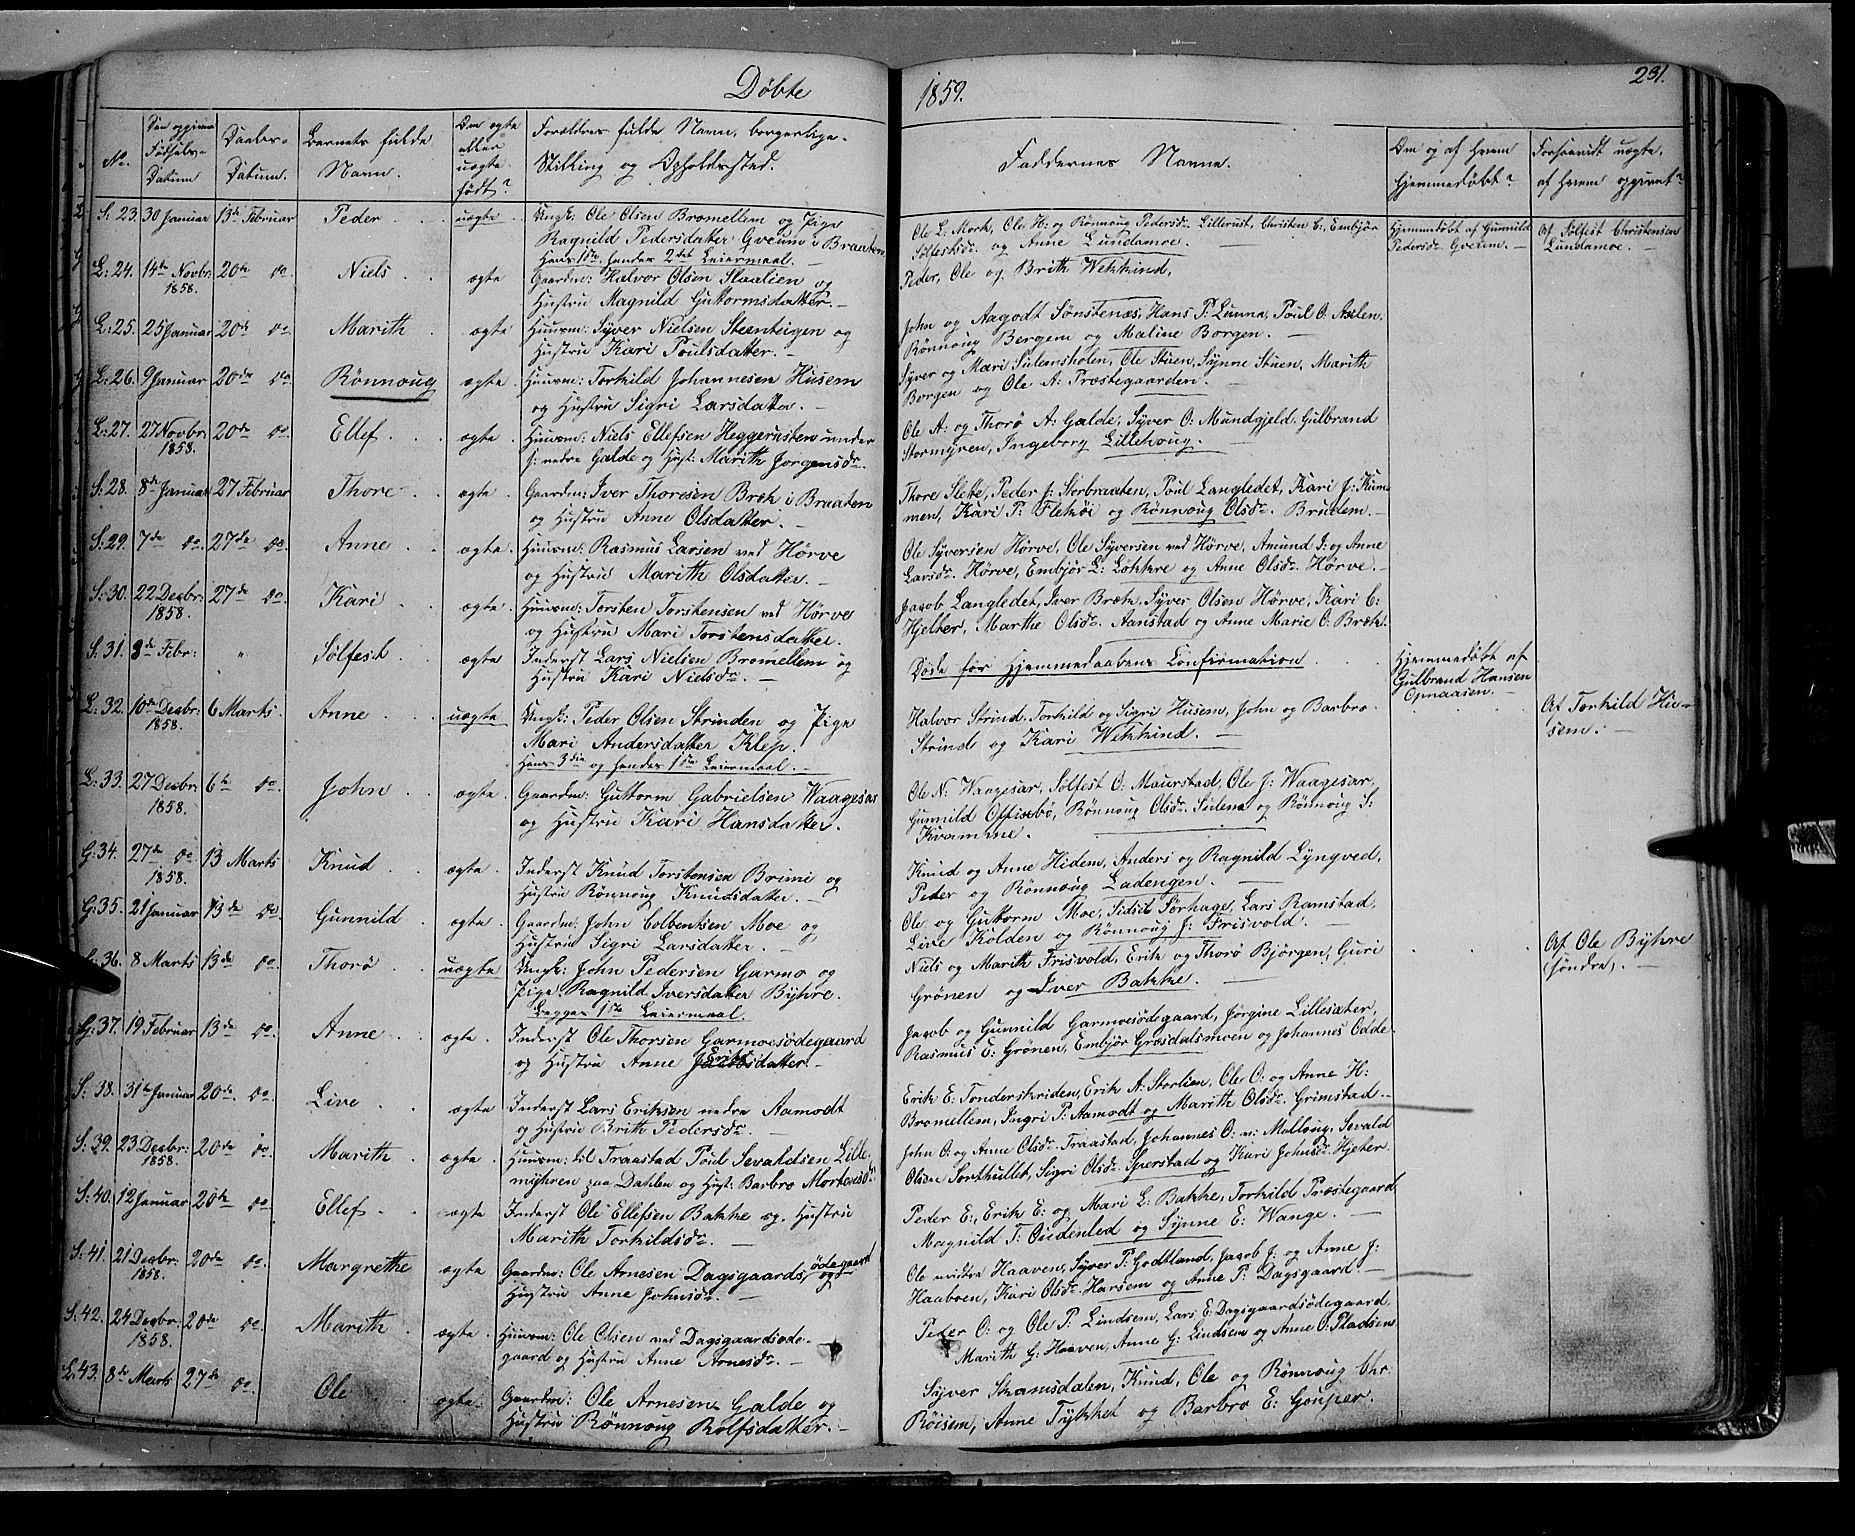 Døbte
1859.
231.
No.
Den opgivne Fødsels-Datum
Daabs-Datum.
Barnets fulde Navn.
Om ægte eller uægte født?
Forældres fulde Navn, borgerlige Stilling og Opholdssted.
Faddernes Navne.
Om og af Hvem hjemmedøbt?
Forsaavidt uægte, af Hvem opgivet?
S: 23. 30 Januar 13de Februar Peder uægte Ungk: Ole Olsen Bromellem og Pige
Ragnild Pedersdatter Gverum i Braaten
Hans 1ste, hendes 2det Leiermaal.
Ole L. Mork, Ole H: og Rönnoug Pedersdr Lillerust, Christen C:, Embjör
Sølfestsdr og Anne Lundamoe.
Hjemmedøbt af Gunnild Pedersdr Gverum.
Af Sølfest Christensen Lundamoe.
L: 24. 14de Novbr 1858. 20de do Niels ægte Gaardm: Halvor Olsen Slaalien og
Hustru Magnild Guttormsdatter.
Peder, Ole og Brith Wekkind.
L: 25. 25 Januar 20de do Marith ægte Huusm: Syver Nielsen Steenteigen og
Hustru Kari Poulsdatter.
John og Aagodt Sønstenæs, Hans P: Lunna, Poul O: Aslen,
Rönnoug Bergem og Maline Borgen.
L: 26. 9 Januar 20de do Rönnoug ægte Huusm: Torkild Johannesen Husem
og Hustru Sigri Larsdatter.
Syver og Mari Sulemsholen, Ole Stuen, Synne Stuen, Marith
Borgen og Ole A: Præstegaarden.
L: 27. 27 Novbr 1858. 20de do Ellef ægte Huusm: Niels Ellefsen Heggerusten under
J: nedre Galde og Hust: Marith Jørgensdr
Ole A: og Thorø A: Galde, Syver O: Mundgjeld, Gulbrand
Stormyren, Ingeborg Lillehoug.
S: 28. 8de Januar 27 Februar Thore ægte Gaardm: Iver Thoresen Bræk i Braaten
og Hustru Anne Olsdatter.
Thore Slette, Peder J: Storbraaten, Poul Langledet, Kari J: Kum-
men, Kari P: Flekøi og Rönnoug Olsdr Brudem.
S: 29. 7de do 27de do Anne ægte Huusm: Rasmus Larsen ved Hörve
og Hustru Marith Olsdatter.
Ole Syversen Hörve, Ole Syversen ved Hörve, Amund I: og Anne
Larsdr Hörve, Embjör L: Løkkre og Anne Olsdr Hörve.
S: 30. 22 Decbr: 1858. 27de do Kari ægte Huusm: Torsten Torstensen ved Hörve
og Hustru Mari Torstensdatter.
Jacob Langledet, Iver Bræk, Syver Olsen Hörve, Kari C:
Hjelter, Marthe Olsdr Aanstad og Anne Marie O: Bræk.
S: 31. 3de Febr: " Sølfest ægte Inderst Lars Nielsen Bromellem og
Hustru Kari Nielsdr
Døde før Hjemmedaabens Confirmation
Hjemmedøbt af Gulbrand Hansen Opnaasen.
L: 32. 10de Decbr 1858. 6 Marts Anne uægte Ungk: Peder Olsen Strinden og Pige
Mari Andersdatter Klep.
Hans 3die og hendes 1ste Leiermaal.
Halvor Strind, Torkild og Sigri Husem, John og Barbro
Strind og Kari Wekkind.
Af Torkild Husem.
L: 33. 27 Decbr: 1858. 6te do John ægte Gaardm: Guttorm Gabrielsen Waagesar
og Hustru Kari Hansdatter.
Ole N: Waagesar, Sølfest O: Maurstad, Ole J: Waagesar,
Gunnild Offisebö, Rönnoug Olsdr Sulem og Rönnoug S:
Kvamme.
G: 34. 27de do 1858. 13 Marts Knud ægte Inderst Knud Torstensen Brimi og
Hustru Rönnoug Knudsdatter.
Knud og Anne Hidem, Anders og Ragnild Lyngved,
Peder og Rönnoug Ladengen.
G: 35. 21 Januar 13de do Gunnild ægte Gaardm: John Colbentsen Moe og
Hustru Sigri Larsdatter.
Ole og Guttorm Moe, Sidsel Sørhage, Lars Ramstad,
Live Kolden og Rönnoug J: Frisvold.
G: 36. 8 Marts 13de do Thorø uægte Ungk: John Pedersen Garmo og
Pige Ragnild Iversdatter Byhre.
Begges 1ste Leiermaal.
Niels og Marith Frisvold, Erik og Thorø Bjørgen, Guri
Grönen og Iver Bakke.
Af Ole Byhre søndre.
G: 37. 19 Februar 13de do Anne ægte Inderst Ole Thorsen Garmoesødegaard
og Hustru Anne Eriksdatter.
Jacob og Gunnild Garmoesødegaard, Jørgine Lillesæter,
Rasmus E: Grönen, Embjör Græsdalsmoen og Johannes Odde
S: 38. 31te Januar 20de do Live ægte Inderst Lars Eriksen nedre Aamodt
og Hustru Brith Pedersdr
Erik E: Tonderskriden, Erik A: Storlien, Ole O: og Anne H:
Bromellem, Ingri P: Aamodt og Marith Olsdr Grimstad.
S: 39. 23 Decbr: 1858. 20de do Marith ægte Huusm: til Traastad Poul Sevaldsen Lille-
myhren paa Dahlen og Hust: Barbro Mortensdr
John O: og Anne Olsdr Traastad, Johannes O: n: Malloug, Sevald
Olsen Sorthullet, Sigri Olsdr Sperstad og Kari Johnsdr Hjelter.
S: 40. 12 Januar 20de do Ellef ægte Inderst Ole Ellefsen Bakke og Hustru
Marith Torkildsdr
Peder E:, Erik E: og Mari L: Bakke, Torkild Præstegaard
Magnild T: Qvidenled og Synne E: Wange.
S: 41. 21 Decbr: 1858. 20de do Margrethe ægte Gaardm: Ole Arnesen Dagsgaardsødegaard og
Hustru Anne Johnsdr
Ole nedre Haaven, Syver P: Godtland, Jacob J: og Anne J:
Haaboen, Kari Olsdr Harsem og Anne P: Dagsgaard.
S: 42. 24 Decbr: 1858. 20de do Marith ægte Huusm: Ole Olsen ved Dagsgaardsøde-
gaard og Hustru Anne Arnesdr
Peder O: og Ole P: Lindsem, Lars E: Dagsgaardsødegaard
Marith G: Haaven, Anne G: Lindsem og Anne O: Pladsen
L: 43. 8de Marts 27de do Ole ægte Gaardm: Ole Arnesen Galde og
Hustru Rönnoug Rolfsdatter.
Syver Skamsdalen, Knud, Ole og Rönnoug Chr.
Röisem, Anne Tykket og Barbro E: Goupær.